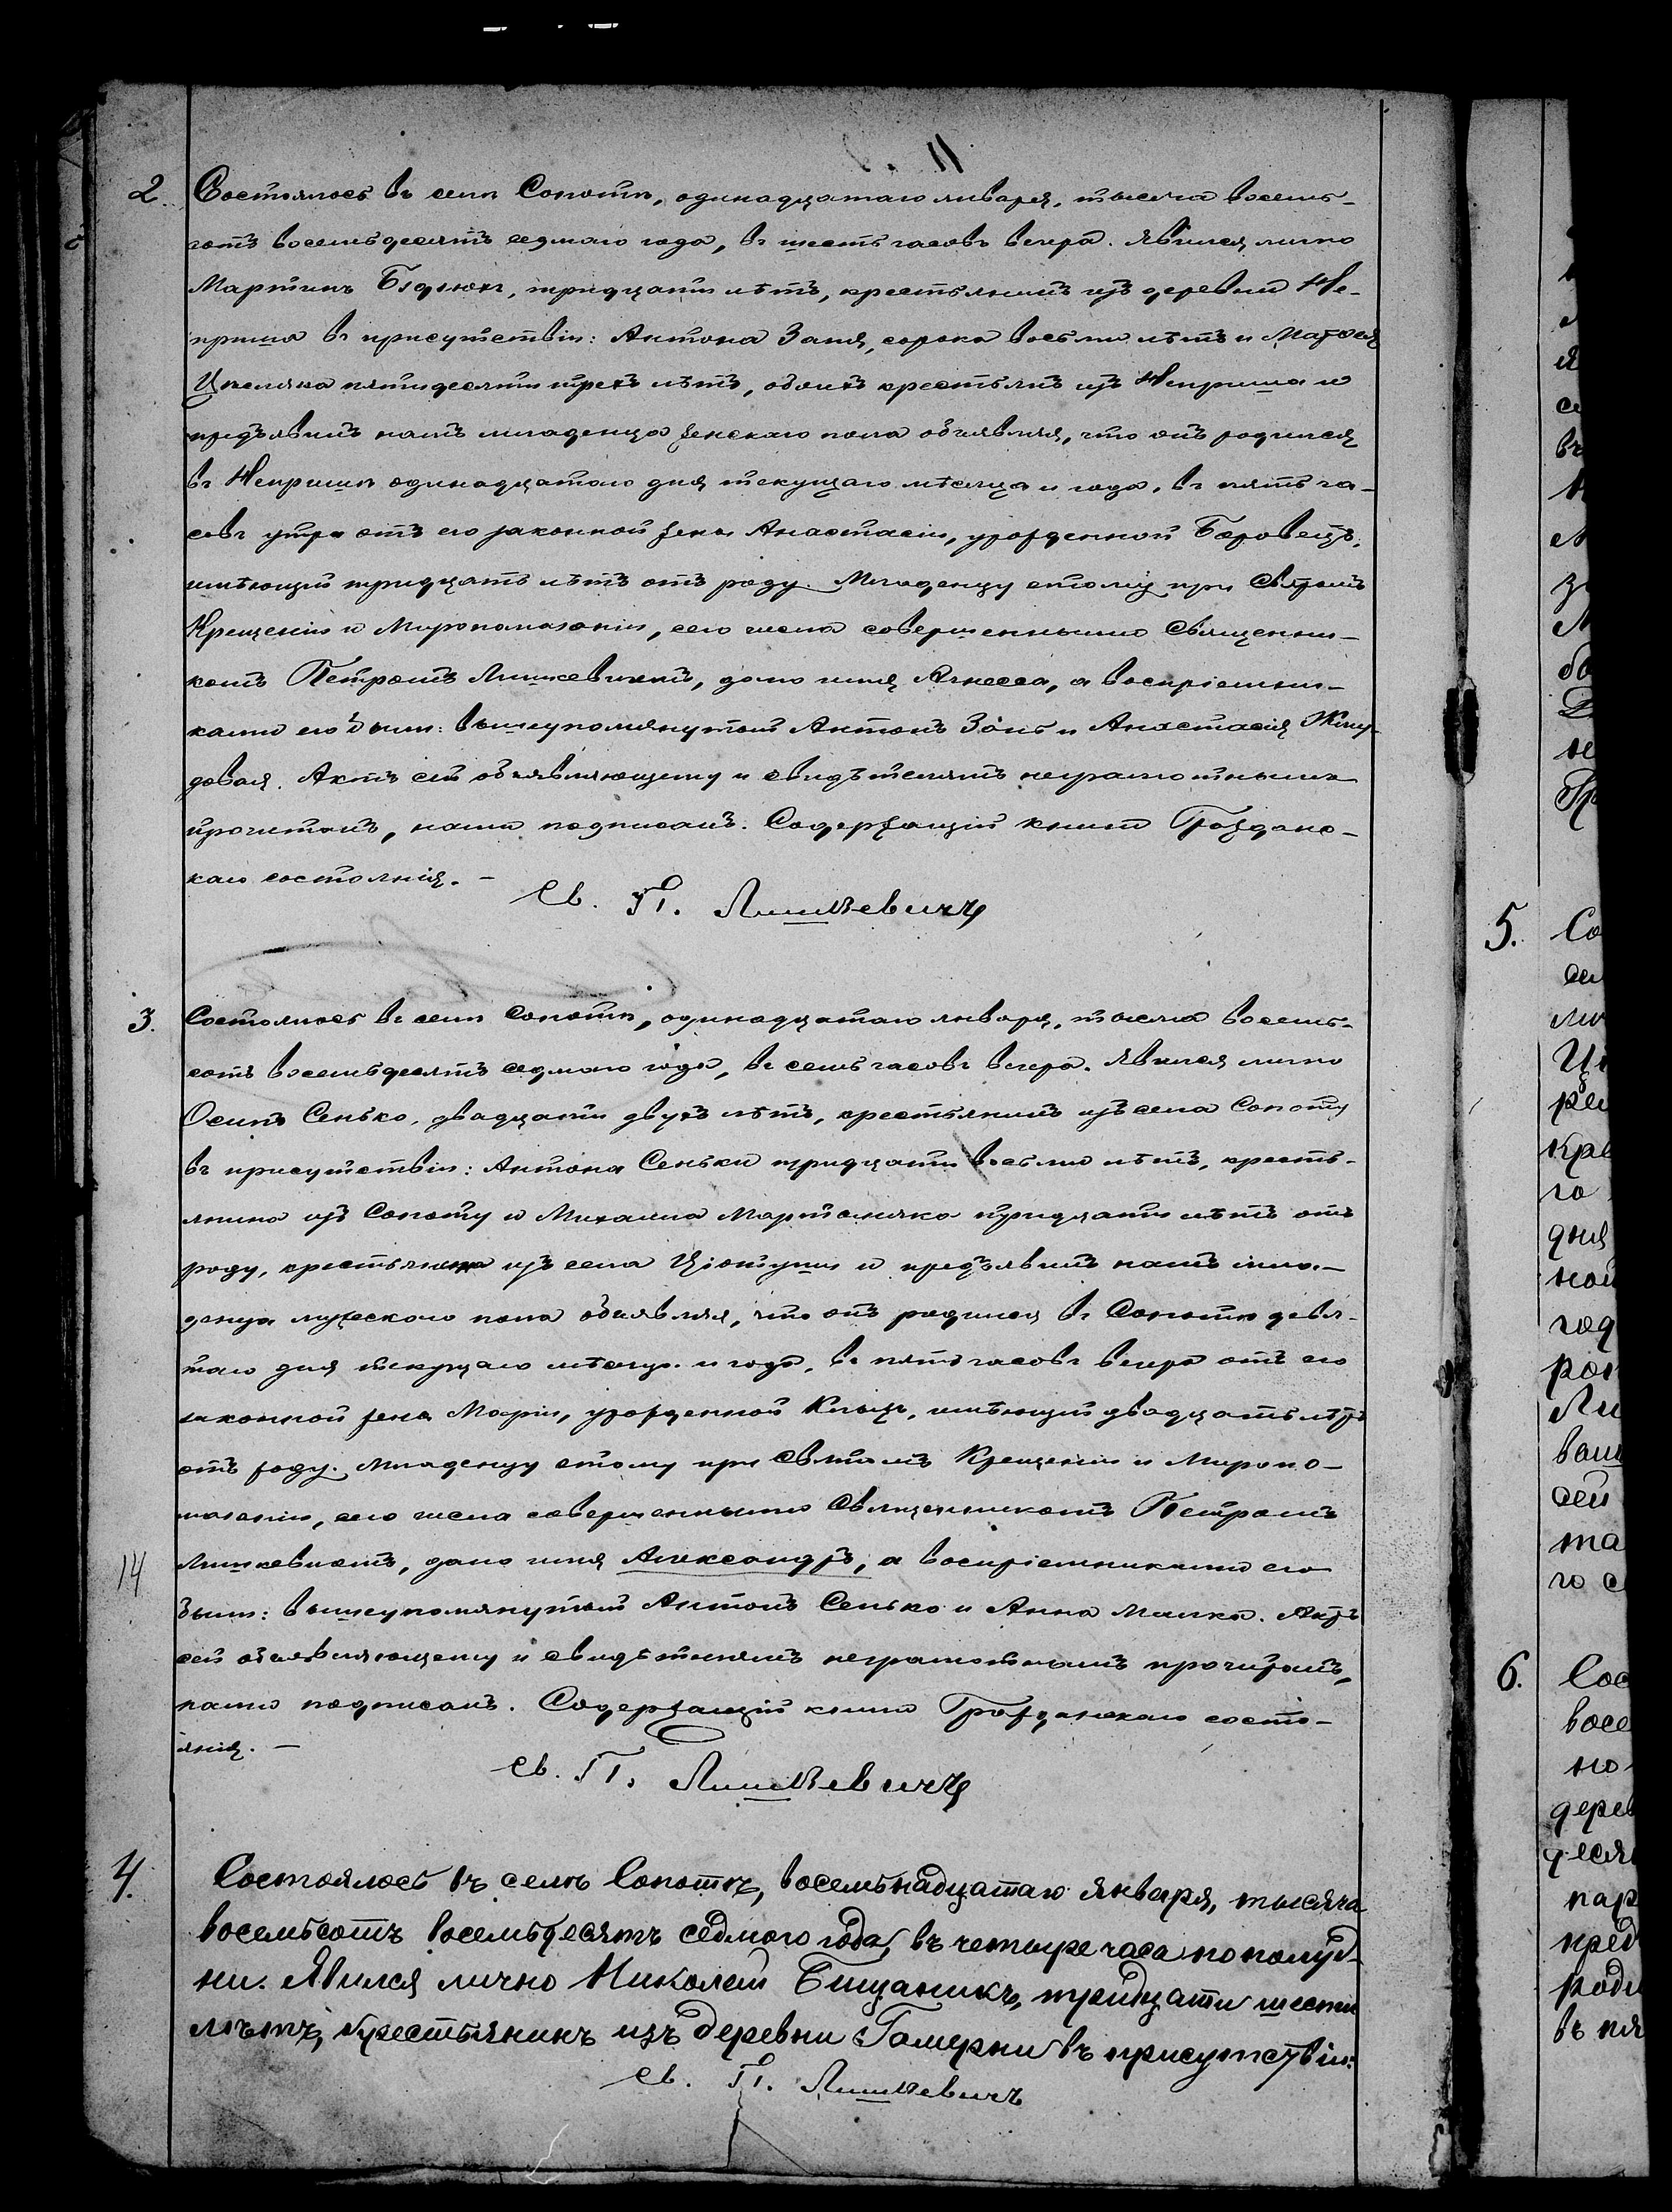 2. Состоялось въ селѣ Сопотѣ, одинадцатаго января, тысяча восемь-
сотъ восемьдесятъ седмаго года, въ шесть часовъ вечера. Явился лично
Мартинъ тридцати лѣтъ, крестьянинъ изъ деревни Не-
приша въ присутствіи: Антона Заня, сорока восьми лѣтъ и Матѳея
пятидесяти трехъ лѣтъ, обоихъ крестьянъ изъ Неприша и
предъявилъ намъ младенца женскаго пола объявляя, что онъ родился
въ Непришѣ одинадцатаго дня текущаго мѣсяца и года, въ пять ча-
совъ утра отъ его законной жены Анастасіи, урожденной Боровецъ,
имѣющей тридцать лѣтъ отъ роду. Младенцу етому при Святомъ
Крещеніи и Миропомазаніи, сего числа совершенными Священни-
комъ Петромъ Лишкевичемъ, дано имя Агнесса, а воспріемни-
ками его были: вышеупомянутый Антонъ Зань и Анастасія
Актъ сей объявляющему и свидѣтелямъ неграмотнымъ
прочитанъ, нами подписанъ. Содержащій книги Граждано-
каго состоянія. –
Св. П. Лишкевичъ
3. Состоялось въ селѣ Сопотѣ, одинадцатаго января, тысяча восемь-
сотъ восемьдесятъ седмаго года, въ семь часовъ вечера. Явился лично
Осипъ Сенько, двадцати двухъ лѣтъ, крестьянинъ изъ села Сопоту
въ присутствіи: Антона Сеньки тридцати восьми лѣтъ, кресть-
янина изъ Сопоту и Михаила Мартыняка тридцати лѣтъ отъ
роду, крестьянина изъ села и предъявилъ намъ мла-
денца мужескаго пола объявляя, что онъ родился въ Сопотѣ девя-
таго дня текущаго мѣсяца и года, въ пять часовъ вечера отъ его
законной жены Маріи, урожденной имѣющей двадцать лѣтъ
отъ роду. Младенцу етому при Святомъ Крещеніи и Миропо-
мазаніи, сего числа совершенными Священникомъ Петромъ
14 Лишкевичемъ, дано имя Александръ, а воспріемниками его
были: вышеупомянутый Антонъ Сенько и Анна Малка. Актъ
сей объявляющему и свидѣтелямъ неграмотнымъ прочитанъ,
нами подписанъ. Содержащій книги Гражданскаго состо-
янія. –
Св. П. Лишкевичъ
4. Состоялось въ селѣ Сопотѣ, восемьнадцатаго января, тысяча
восемьсотъ восемьдесятъ седмого года, въ четыре часа по полуд-
ни. Явился лично Николай Бищаникъ, тридцати шести
лѣтъ, крестьянинъ изъ деревни Гамерни въ присутствіи:
Св. П. Лишкевичъ
5. Со
ли
Ци
кре
го
дня
ной
год
Ли
сей
та
го с
6. Сос
восе
но
дерев
десят
пар
пред
роди
въ пя